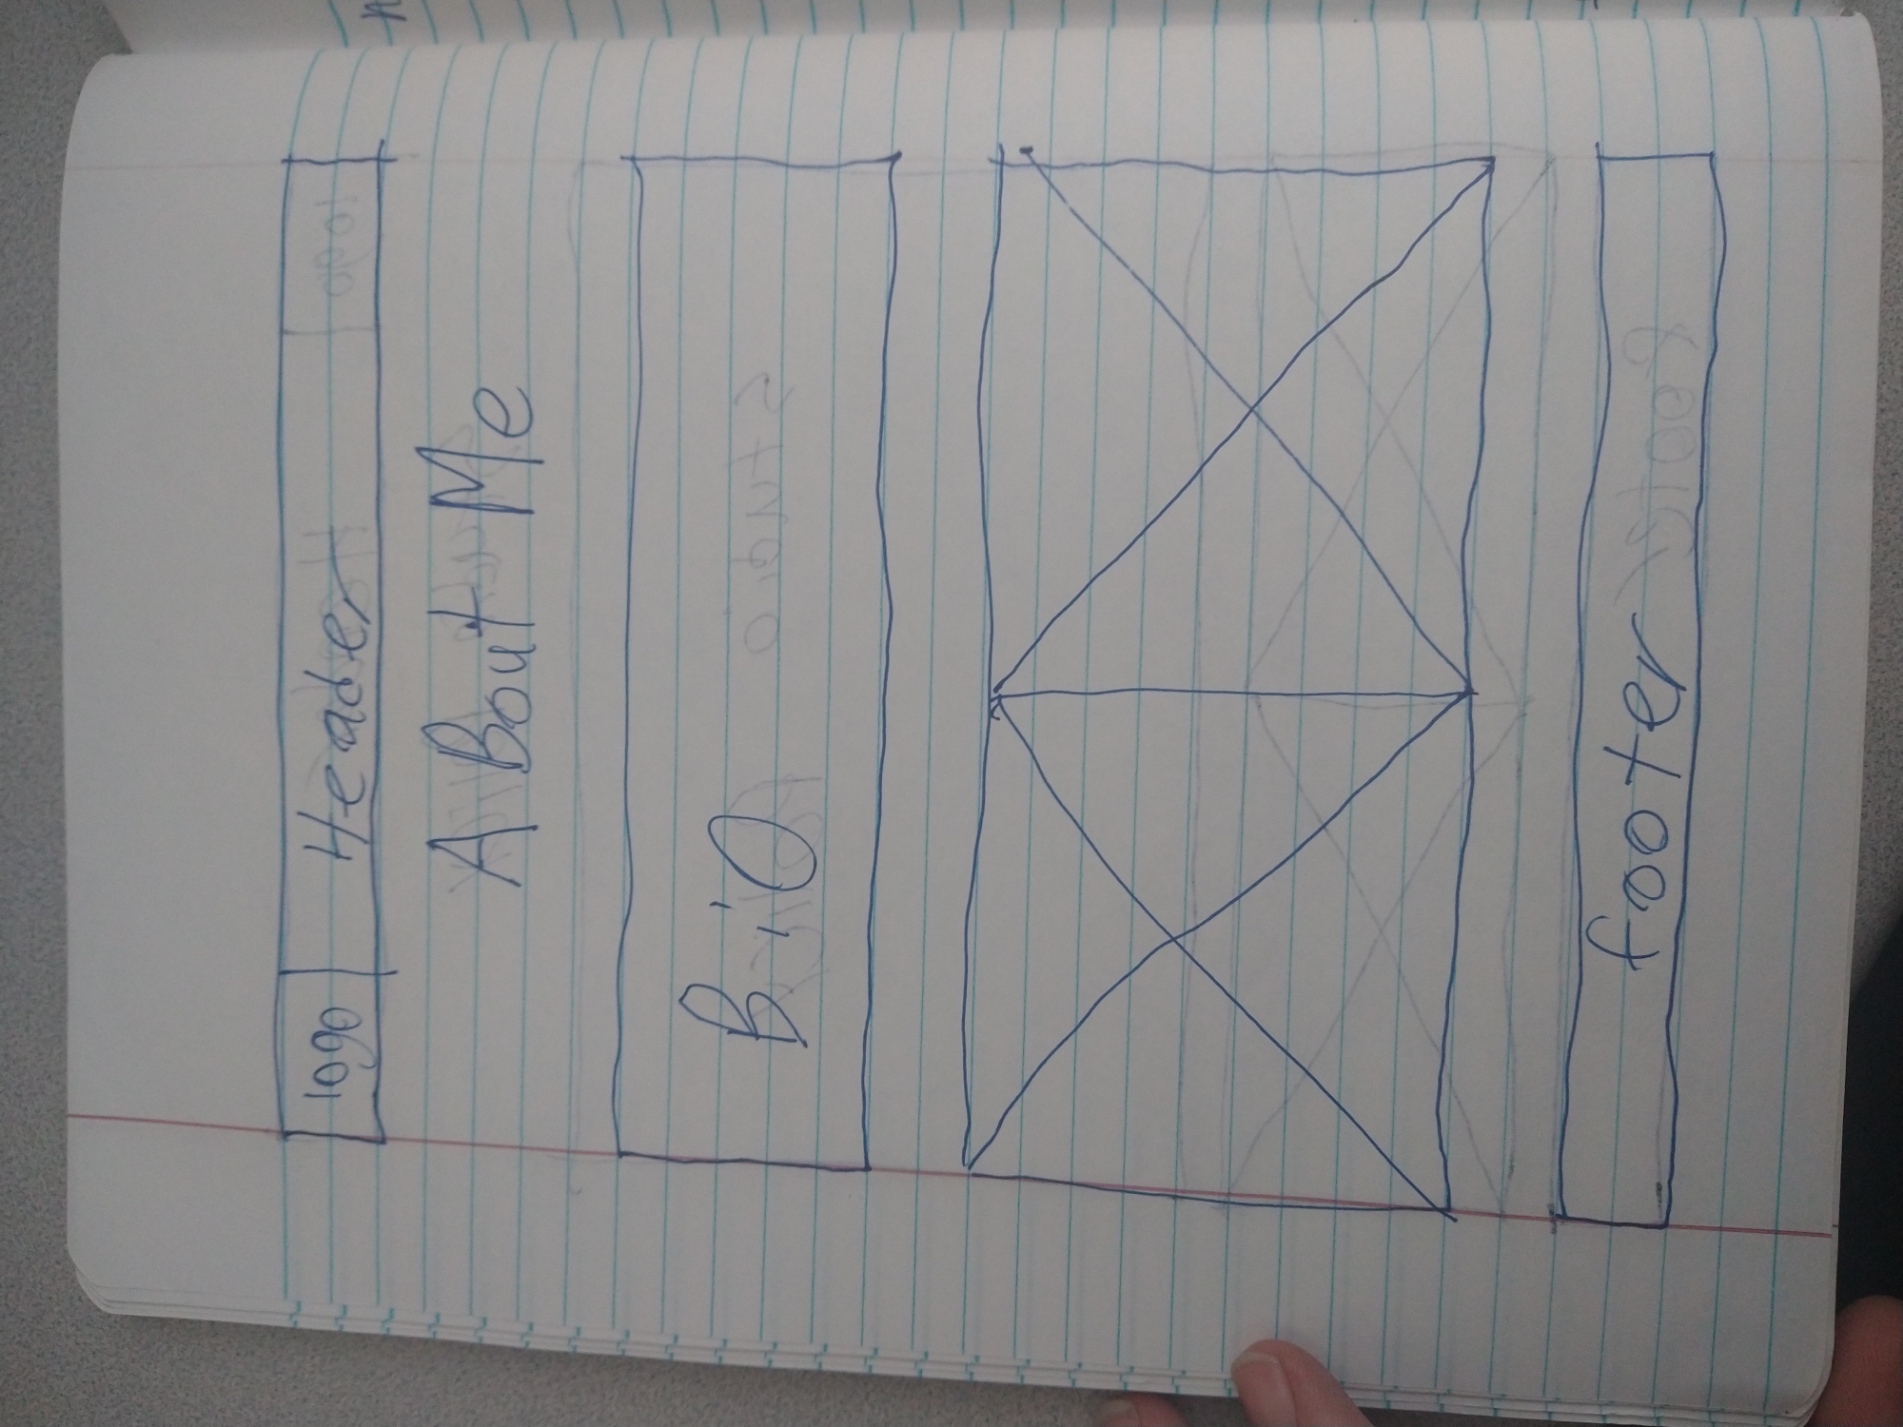 logo Header
A Bout Me
BiO
footer